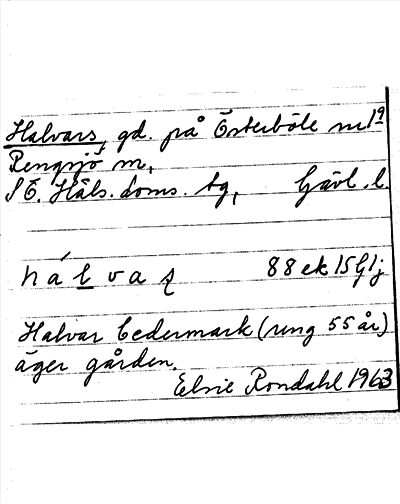 Halvars, gd. på Österböle nr 1ª
Rengsjö sn,
S Ö. Häls. doms. tg, Gävl. l.
hálvaʂ 88 ek 15 Glj
Halvar Cedermark (ung 55 år)
äger gården.
Elsie Rondahl 1963